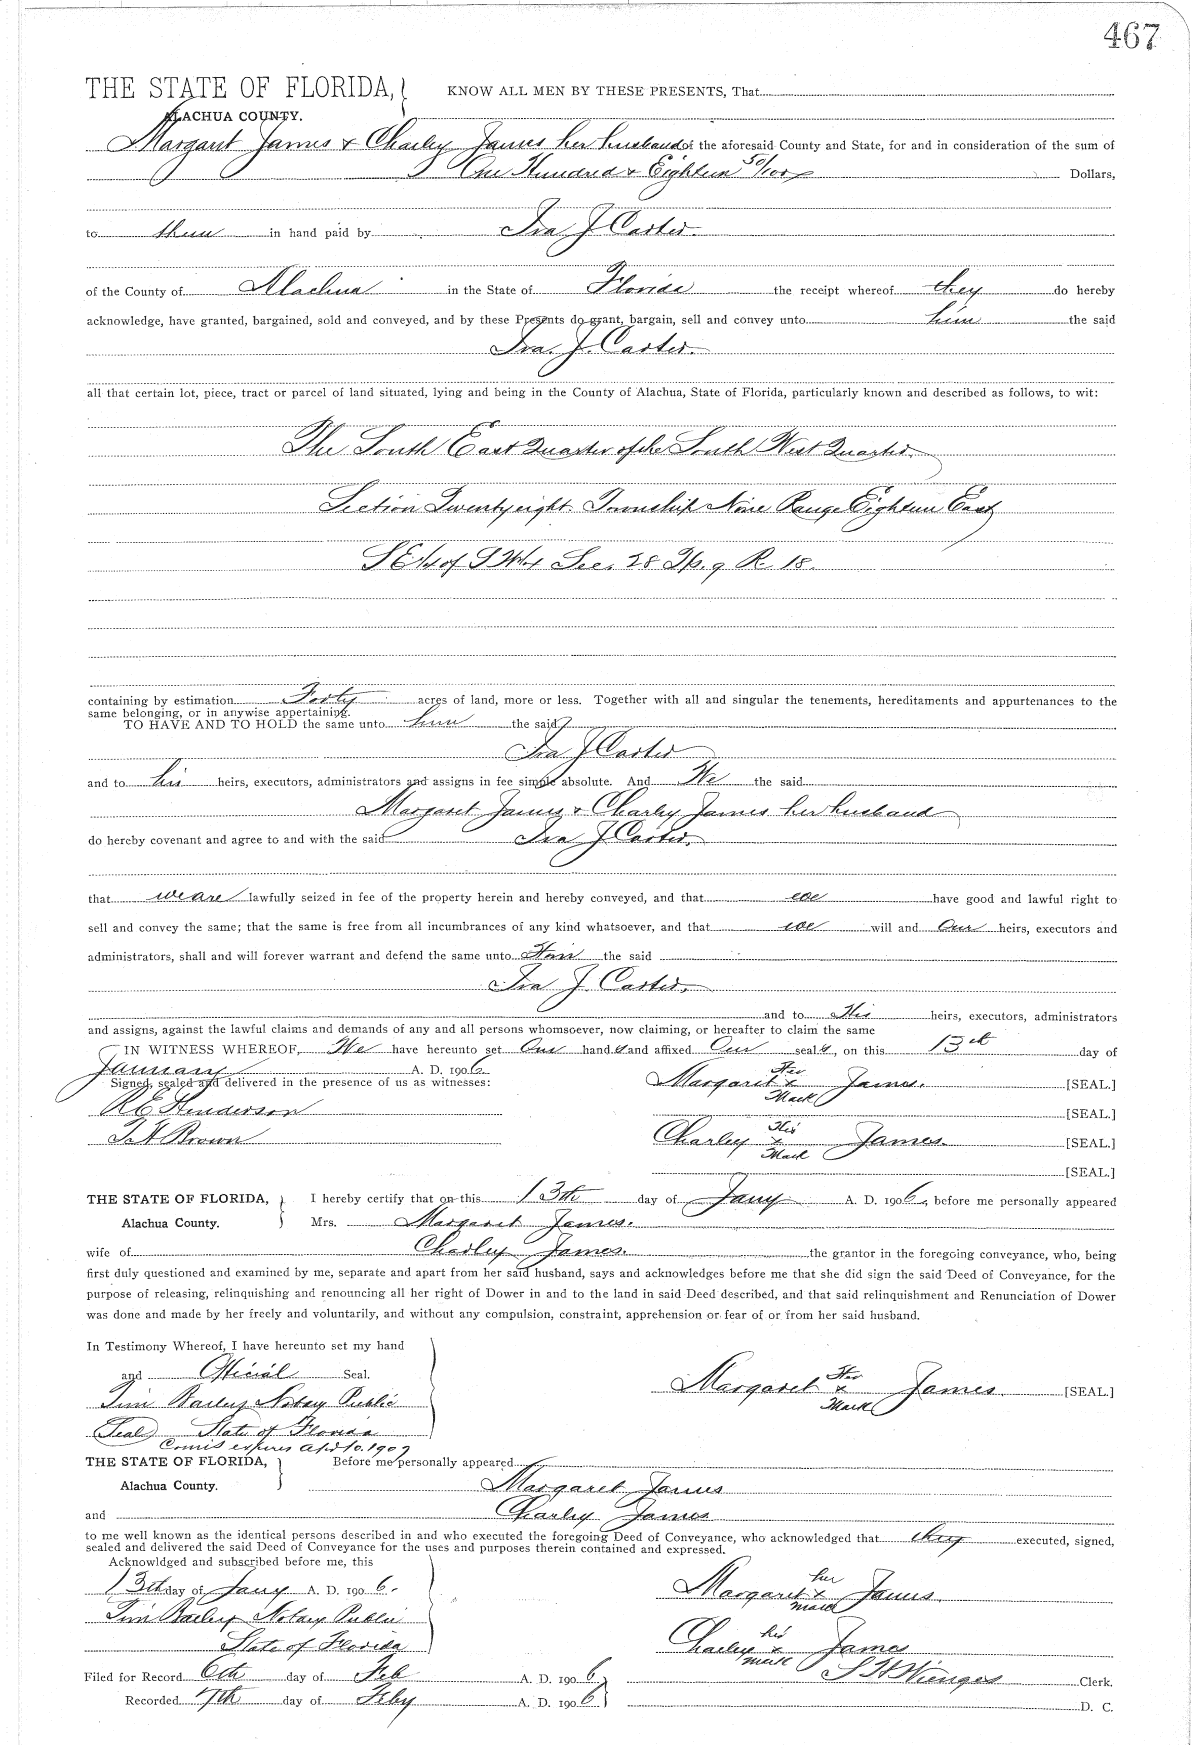 467
THE STATE OF FLORIDA, KNOW ALL MEN BY THESE PRESENTS, That
ALACHUA COUNTY.
Margaret James & Charley James her husband of the aforesaid County and State, for and in consideration of the sum of
One Hundred & Eighteen 50/100 Dollars,
to them in hand paid by Ira J Carter.
of the County of Alachua in the State of Florida the receipt whereof they do hereby
acknowledge, have granted, bargained, sold and conveyed, and by these Presents do grant, bargain, sell and convey unto him the said
Ira. J. Carter.
all that certain lot, piece, tract or parcel of land situated, lying and being in the County of Alachua, State of Florida, particularly known and described as follows, to wit:
The South East Quarter of the South West Quarter
Section Twentyeight Township Nine Range Eighteen East
S E 1/4 of S W 1/4 Sec. 28 Tp. 9 R. 18.
containing by estimation Forty acres of land, more or less. Together with all and singular the tenements, hereditaments and appurtenances to the
same belonging, or in anywise appertaining.
TO HAVE AND TO HOLD the same unto him the said
Ira J Carter
and to his heirs, executors, administrators and assigns in fee simple absolute. And We the said
Margaret James & Charley James her husband
do hereby covenant and agree to and with the said Ira J Carter.
that we are lawfully seized in fee of the property herein and hereby conveyed, and that we have good and lawful right to
sell and convey the same; that the same is free from all incumbrances of any kind whatsoever, and that we will and Our heirs, executors and
administrators, shall and will forever warrant and defend the same unto Him the said
Ira J. Carter.
and to His heirs, executors, administrators
and assigns, against the lawful claims and demands of any and all persons whomsoever, now claiming, or hereafter to claim the same
IN WITNESS WHEREOF, We have hereunto set Our hands and affixed Our seals, on this 13th day of
January A. D. 1906.
Signed, sealed and delivered in the presence of us as witnesses: Margaret Her x Mark James. [SEAL.]
R E Henderson [SEAL.]
T. H Brown Charley His x Mark James. [SEAL.]
[SEAL.]
THE STATE OF FLORIDA, I hereby certify that on this 13th day of Jany A. D. 1906, before me personally appeared
Alachua County. Mrs. Margaret James.
wife of Charley James. the grantor in the foregoing conveyance, who, being
first duly questioned and examined by me, separate and apart from her said husband, says and acknowledges before me that she did sign the said Deed of Conveyance, for the
purpose of releasing, relinquishing and renouncing all her right of Dower in and to the land in said Deed described, and that said relinquishment and Renunciation of Dower
was done and made by her freely and voluntarily, and without any compulsion, constraint, apprehension or fear of or from her said husband.
In Testimony Whereof, I have hereunto set my hand
and Official Seal. Margaret Her x Mark James [SEAL.]
Tim Bailey Notary Public
(Seal) State of Florida
Comis expires Apl 10. 1907
THE STATE OF FLORIDA, Before me personally appeared
Alachua County. Margaret James
and Charley James
to me well known as the identical persons described in and who executed the foregoing Deed of Conveyance, who acknowledged that they executed, signed,
sealed and delivered the said Deed of Conveyance for the uses and purposes therein contained and expressed.
Acknowldged and subscribed before me, this
13th day of Jany A. D. 1906. Margaret her x mark James
Tim Bailey Notary Public
State of Florida Charley his x mark James
Filed for Record 6th day of Feb A. D. 1906 S H Wienges Clerk.
Recorded 7th day of Feby A. D. 1906 D. C.